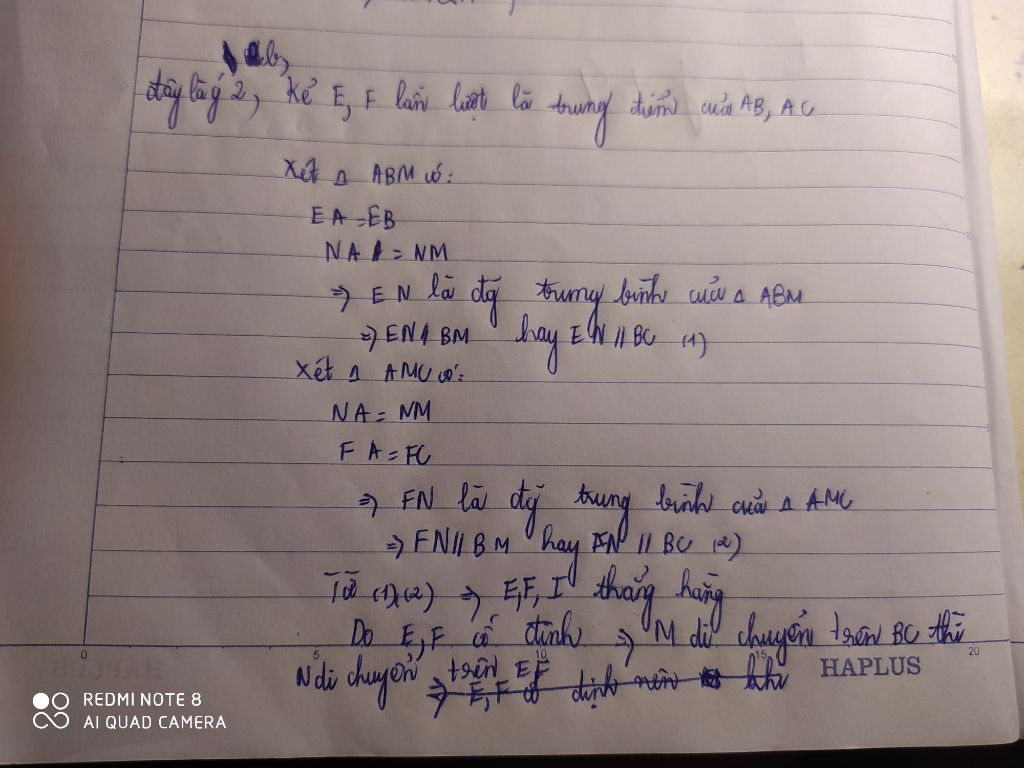 b,
đây là ý 2, Kẻ E, F lần lượt là trung điểm của AB, AC
Xét Δ ABM có:
EA = EB
NA = NM
=> EN là đg trung bình của Δ ABM
=> EN // BM hay EN // BC (1)
Xét Δ AMC có:
NA = NM
FA = FC
=> FN là đg trung bình của Δ AMC
=> FN // BM hay FN // BC (2)
Từ (1)(2) => E, F, I thẳng hàng
Do E, F cố định => M di chuyển trên BC thì
N di chuyển trên EF
=> E, F cố định nên khi
0 5 10 15 20
HAPLUS
REDMI NOTE 8
AI QUAD CAMERA